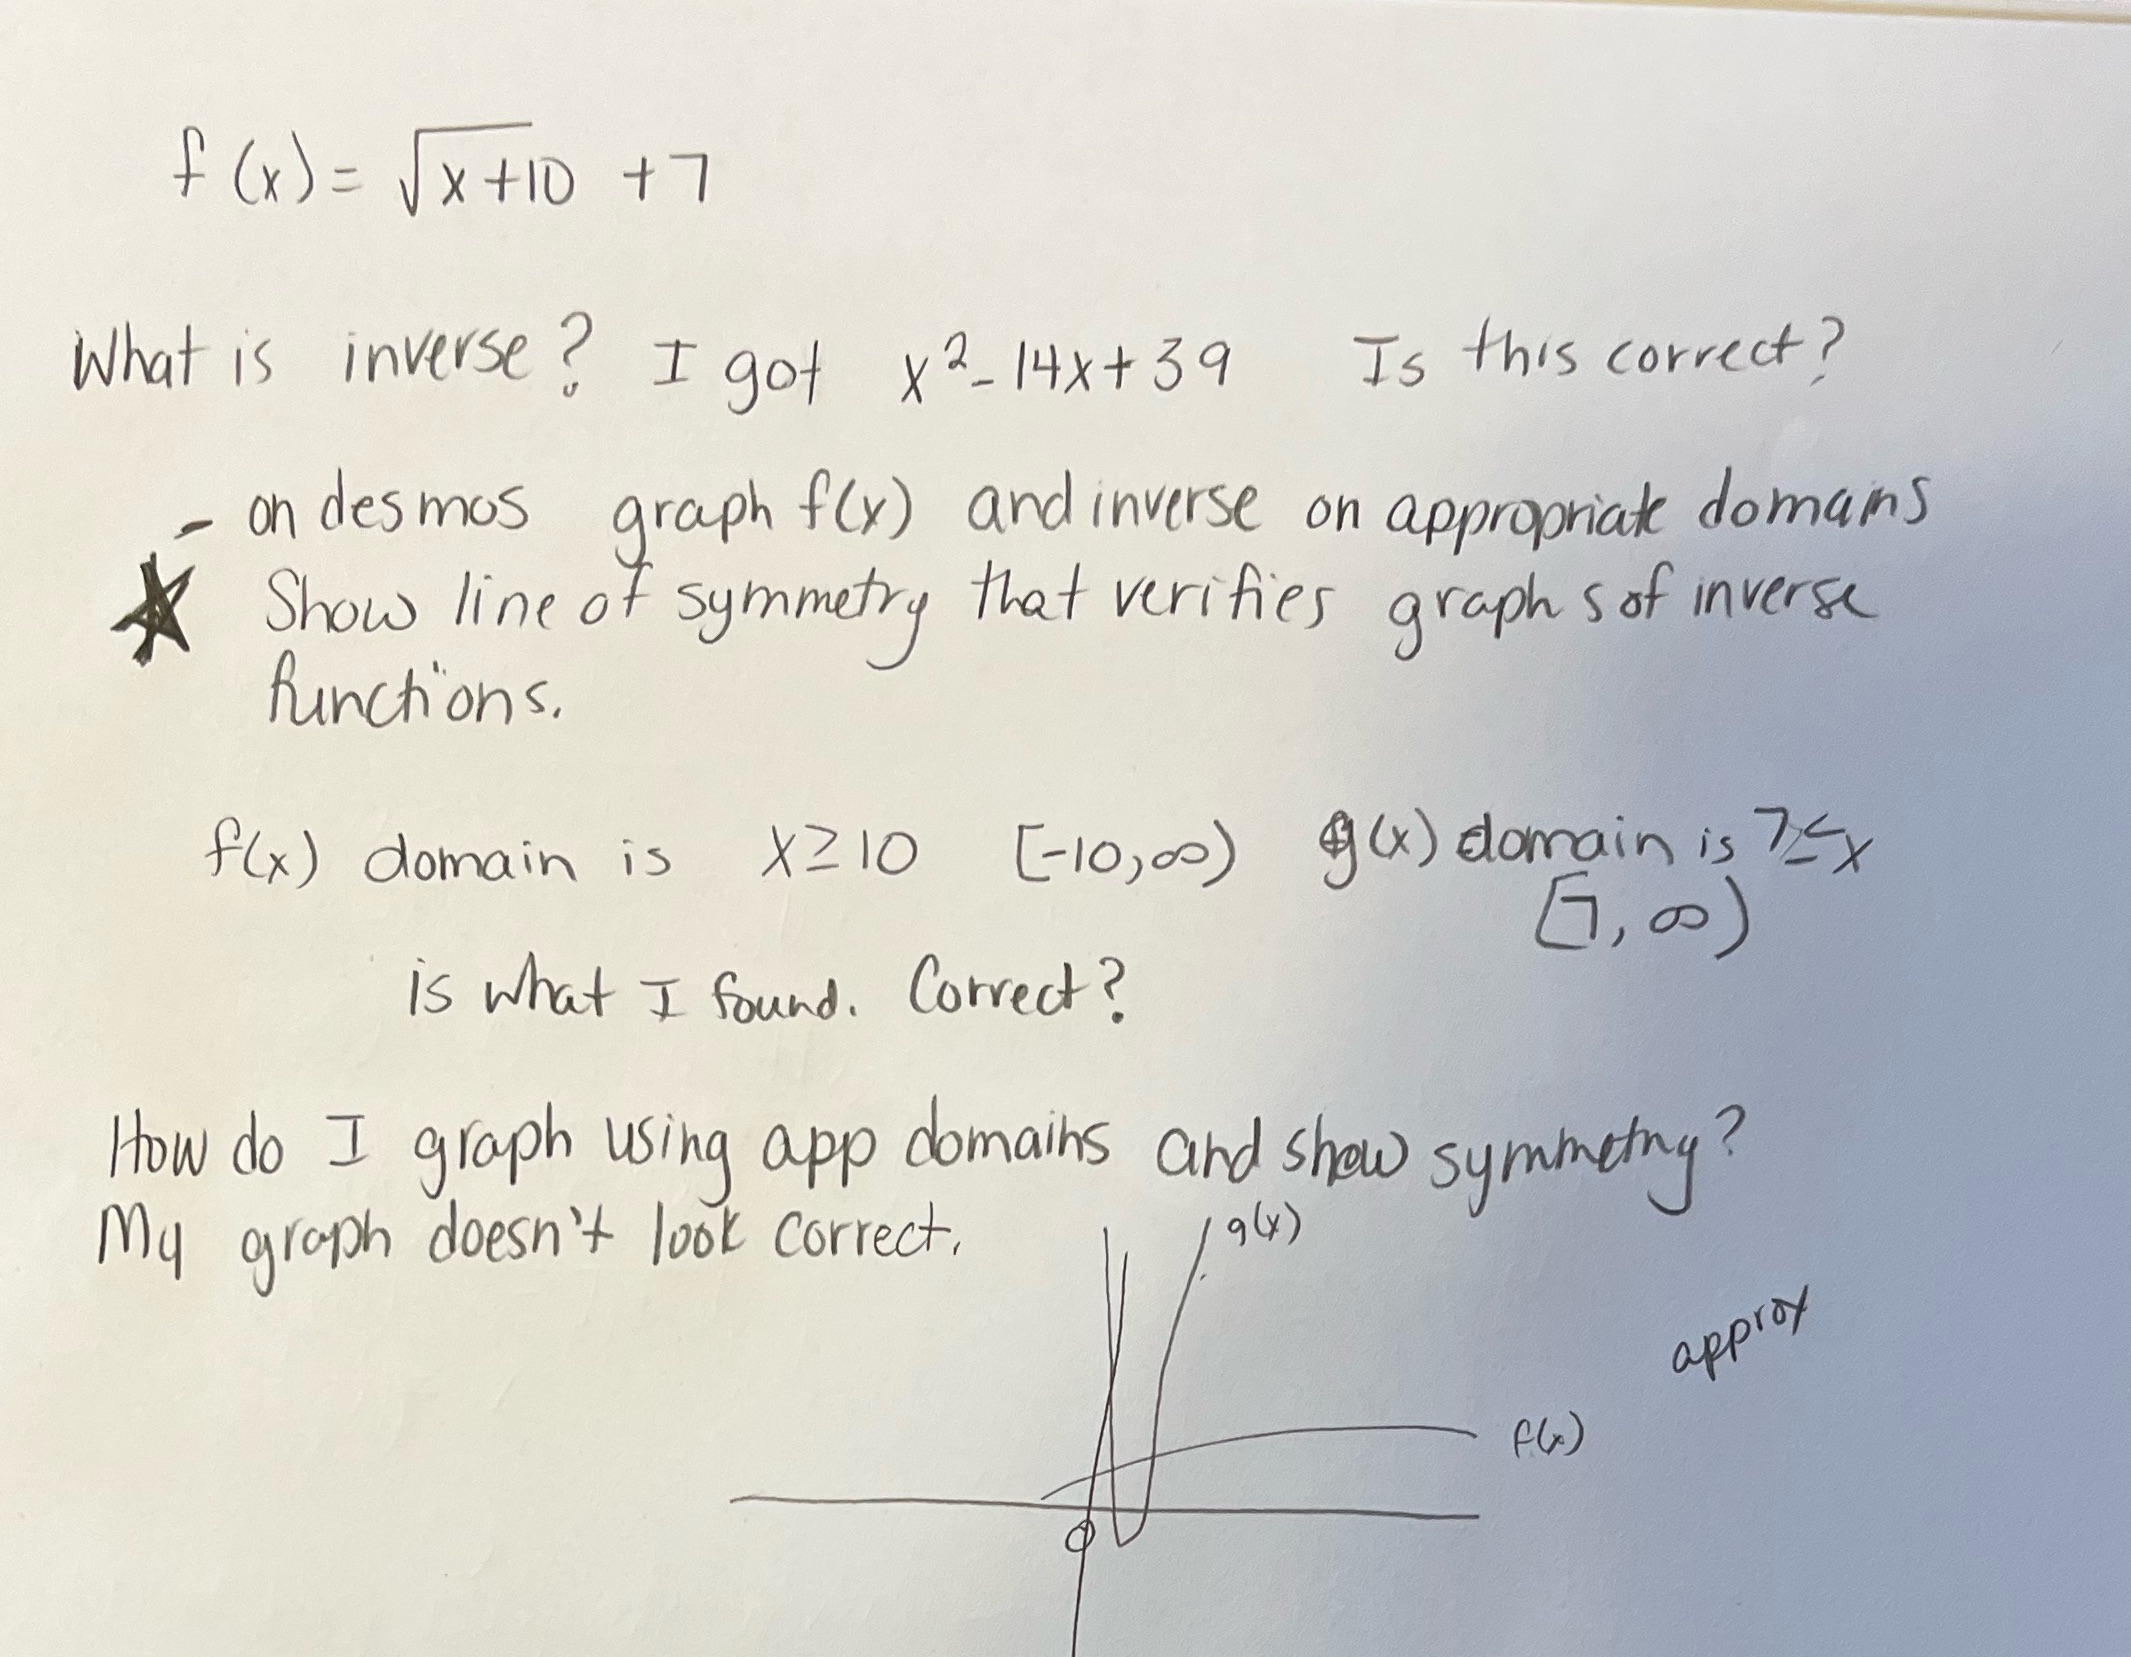 f(x) = √x+10 +7
What is inverse? I got x²-14x+39 Is this correct?
- on desmos graph f(x) and inverse on appropriate domains
Show line of symmetry that verifies graphs of inverse
functions.
f(x) domain is x≥10 [-10,∞) g(x) domain is 7≤x
[7,∞)
is what I found. Correct?
How do I graph using app domains and show symmetry?
My graph doesn't look correct.
g(x)
approx
f(x)
0